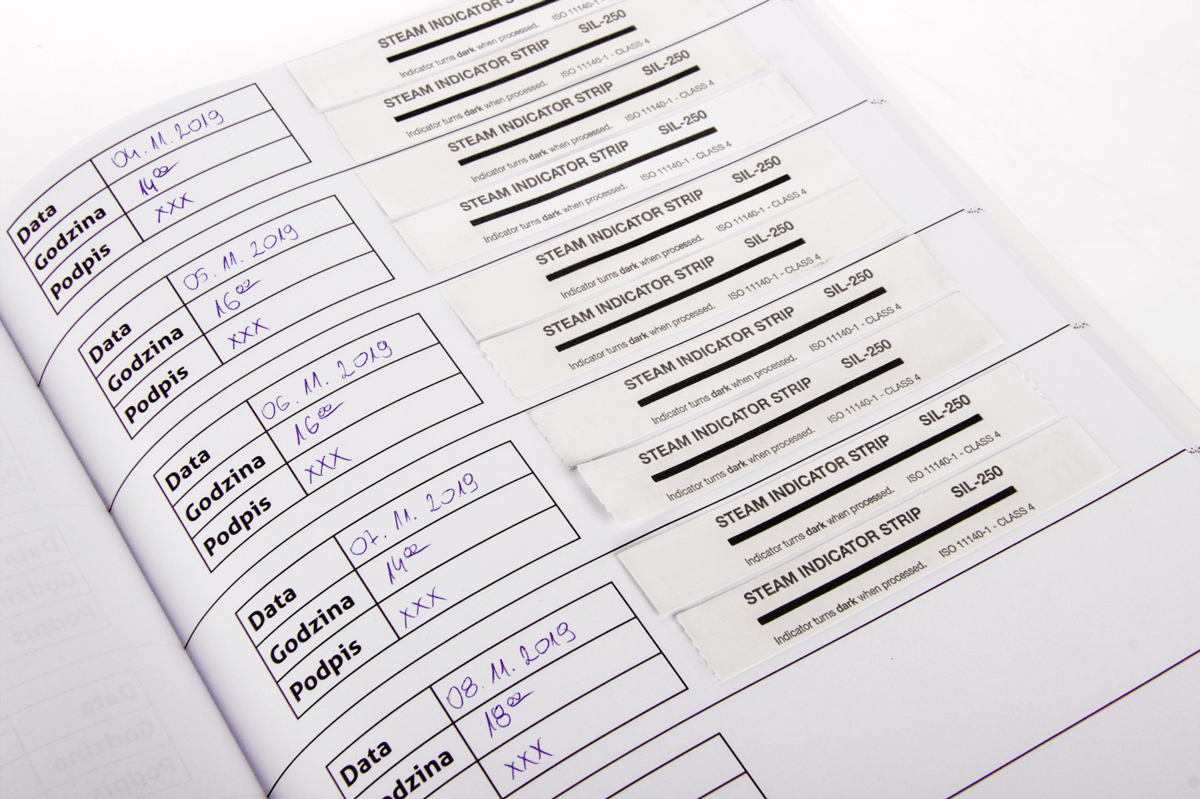 Data 04.11.2019
Godzina 14⁰⁰
Podpis xxx
STEAM INDICATOR
Indicator turns dark when processed. ISO 11140-1
STEAM INDICATOR STRIP SIL-250
Indicator turns dark when processed. ISO 11140-1 - CLASS 4
Data 05.11.2019
Godzina 16⁰⁰
Podpis xxx
STEAM INDICATOR STRIP SIL-250
Indicator turns dark when processed. ISO 11140-1 - CLASS 4
STEAM INDICATOR STRIP SIL-250
Indicator turns dark when processed. ISO 11140-1 - CLASS 4
Data 06.11.2019
Godzina 16⁰⁰
Podpis xxx
STEAM INDICATOR STRIP SIL-250
Indicator turns dark when processed. ISO 11140-1 - CLASS 4
STEAM INDICATOR STRIP SIL-250
Indicator turns dark when processed. ISO 11140-1 - CLASS 4
Data 07.11.2019
Godzina 14⁰⁰
Podpis xxx
STEAM INDICATOR STRIP SIL-250
Indicator turns dark when processed. ISO 11140-1 - CLASS 4
STEAM INDICATOR STRIP SIL-250
Indicator turns dark when processed. ISO 11140-1 - CLASS 4
Data 08.11.2019
Godzina 18⁰⁰
xxx
STEAM INDICATOR STRIP SIL-250
Indicator turns dark when processed. ISO 11140-1 - CLASS 4
STEAM INDICATOR STRIP SIL-250
Indicator turns dark when processed. ISO 11140-1 - CLASS 4